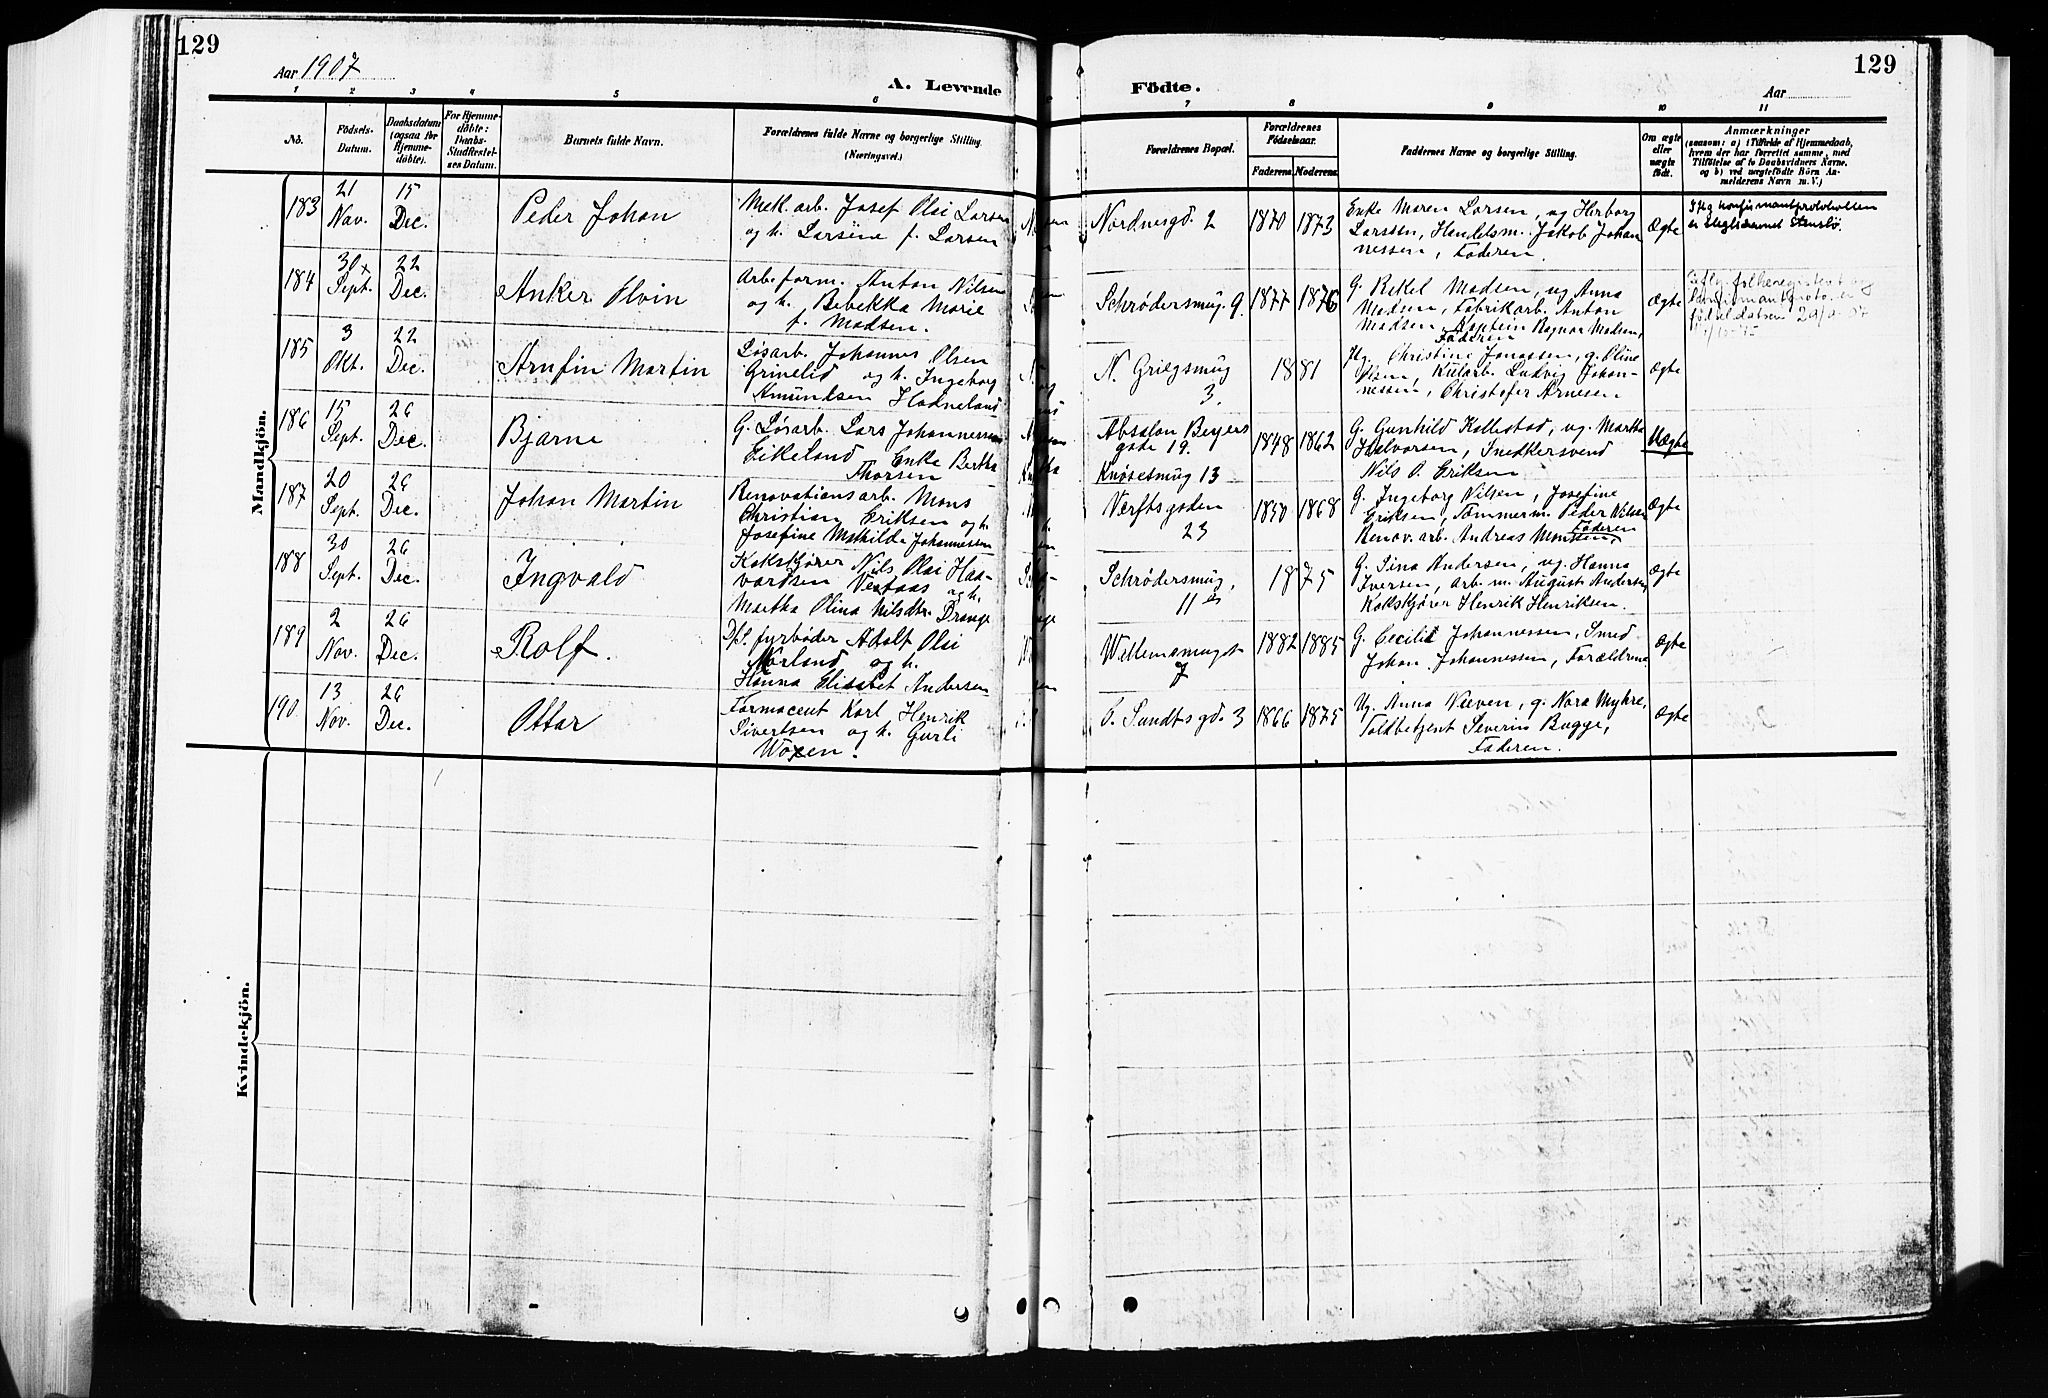 129
129
Aar 1907
A. Levende
Födte.
Aar
1 2 3 4 5 6
7 8 9 10 11
No.
Födsels-
Datum.
Daabsdatum
(ogsaa for
Hjemme-
döbte).
For Hjemme-
döbte:
Daabs-
Stadfæstel-
ses Datum.
Barnets fulde Navn.
Forældrenes fulde Navne og borgerlige Stilling.
(Næringsvei.)
Forældrenes Bopæl.
Forældrenes
Födselsaar.
Faderens. Moderens.
Faddernes Navne og borgerlige Stilling.
Om ægte
eller
uægte
födt.
Anmærkninger
(saasom: a) i Tilfælde af Hjemmedaab,
hvem der har forrettet samme, med
Tilföielse af to Daabsvidners Navne,
og b) ved uægtefödte Börn An-
melderens Navn m. V.)
Mandkjön.
183
21
Nov.
15
Dec.
Peder Johan
Mek. arb. Josef Olai Larsen
og h. Larsine f. Larsen
Nordnesgd. 2
1870 1873
Enke Maren Larsen, ug Herborg
Larssen, Handelsm. Jakob Johan-
nessen, Faderen.
Ægte
Iflg konfirmantprotokollen
er slegtsnavnet Stenslø.
184
30 x
Sept.
22
Dec.
Anker Olvin
Arb.form. Anton Nilsen
og h. Rebekka Marie
f. Madsen.
Schrødersmug. 9.
1877 1876
G. Rekel Madsen, ug Anna
Madsen, Fabrikarb. Anton
Madsen, Kaptein Ragnar Madsen,
Faderen
Ægte
folkeregisteret og
konfirmantprot. er
fødselsdatoen
185
3
Okt.
22
Dec.
Arnfin Martin
Løsarb. Johannes Olsen
Grinelid og h. Ingeborg
Amundsen Hodneland
N. Griegsmug
3.
1881
Christine Jonassen, g. Oline
Olsen, Kularb. Ludvig Johan-
nessen, Christofer Arnesen
Ægte
186
15
Sept.
26
Dec.
Bjarne
G. Løsarb. Lars Johannessen
Eikeland Enke Bertha
Thorsen
Absalon Beyers
gade 19.
Knøsesmug 13
1848 1862
G. Gunhild Kallestad, ug. Martha
Halvorsen, Snedkersvend
Nils O. Eriksen
Uægte
187
20
Sept.
26
Dec.
Johan Martin
Renovationsarb. Mons
Christian Eriksen og h.
Josefine Mathilde Johannessen
Verftsgaden
23
1850 1868
G. Ingeborg Nilsen, Josefine
Eriksen, Tømmerm. Peder Nilsen
Renov. arb. Andreas Monsen, Faderen
Ægte
188
30
Sept.
26
Dec.
Ingvald
Kokskjører Nils Olai Haa-
vardsen Vestaas og h.
Martha Olina Nilsdtr. Drange
Schrødersmug,
11 a
1875
G. Sina Andersen, ug. Hanna
Iversen, arb. m. August Andersen
Kokskjører Henrik Henriksen.
Ægte
189
2
Nov.
26
Dec.
Rolf.
Dps. fyrbøder Adolf Olai
Norland og h.
Hanna Elisabet Andersen
Willemsmuget
7
1882 1885
G. Cecilie Johannessen, Smed
Johan Johannessen, Forældrene
Ægte
190
13
Nov.
26
Dec.
Ottar
Farmaceut Karl Henrik
Sivertsen og h. Gurli
Woxen.
E. Sundtsgd. 3
1866 1875
Ug. Anna Vieven, g. Nora Myhre,
Toldbetjent Severin Bugge,
Faderen.
Ægte
Kvindekjön.